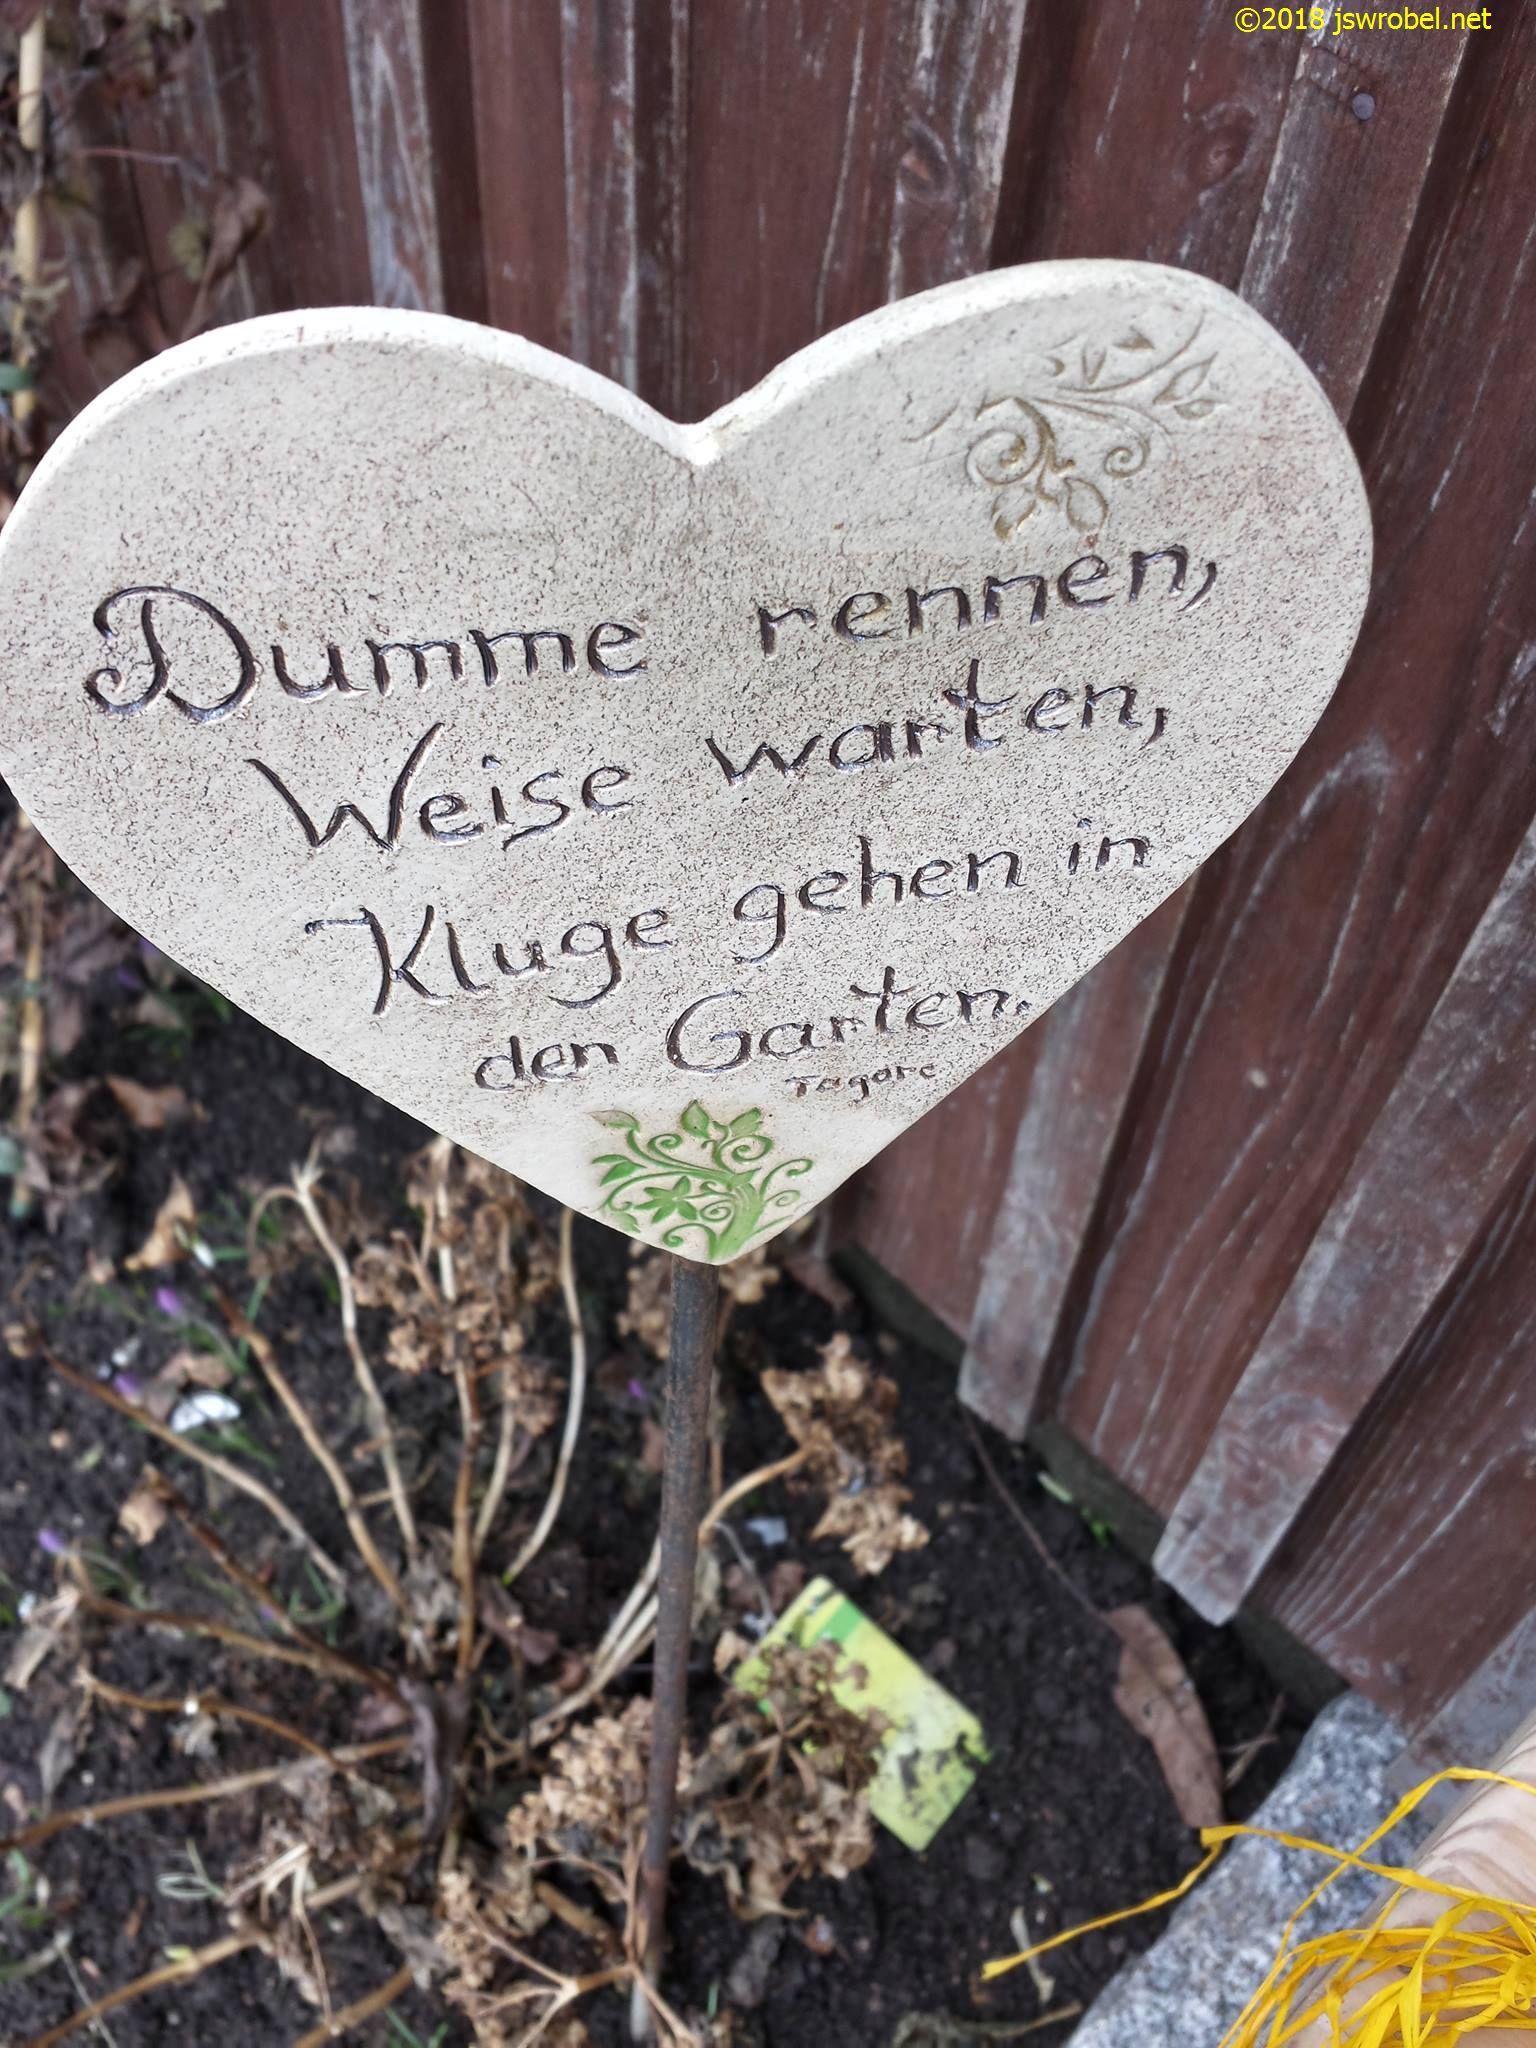 ©2018 jswrobel.net
Dumme rennen,
Weise warten,
Kluge gehen in
den Garten.
Tagore